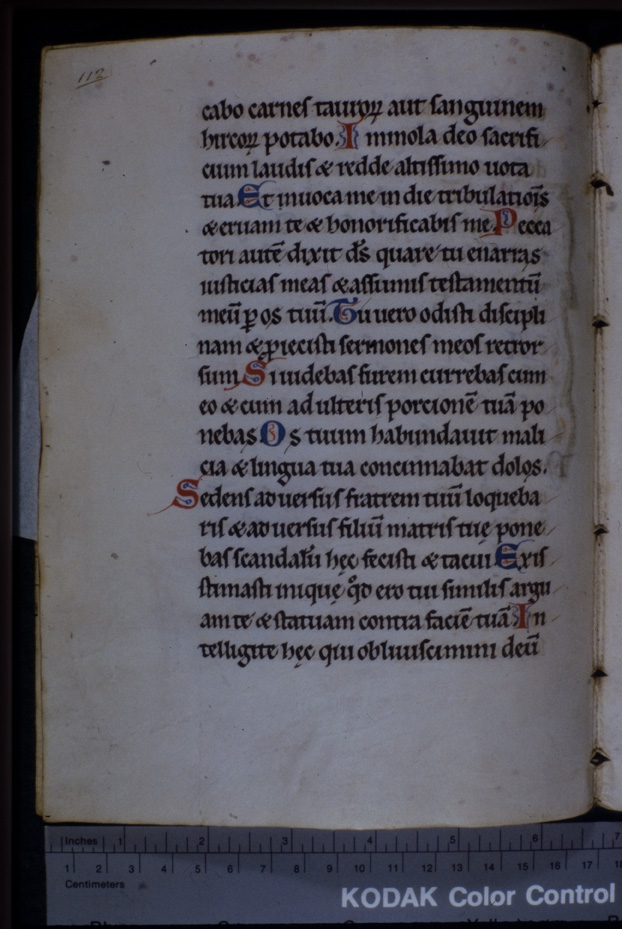 112
cabo carnes tauroꝝ aut sanguinem
hircoꝝ potabo. Immola deo sacrifi
cium laudis & redde altissimo uota
tua Et inuoca me in die tribulatiōis
& eruam te & honorificabis me. Pecca
tori autē dixit d̄s quare tu enarras
iusticias meas & assumis testamentū
meū ꝑ os tuū. Tu uero odisti discipli
nam & ꝓiecisti sermones meos retror
sum Si uidebas furem currebas cum
eo & cum adulteris porcionē tuā po
nebas Os tuum habundauit mali
cia & lingua tua concinnabat dolos.
Sedens aduersus fratrem tuū loqueba
ris & aduersus filiū matris tuę pone
bas scandalū hęc fecisti & tacui Exis
stimasti inique qͦd ero tui similis argu
am te & statuam contra faciē tuā In
telligite hęc qui obliuiscimini deū
Inches 1 2 3 4 5 6 7
1 2 3 4 5 6 7 8 9 10 11 12 13 14 15 16 17 18
Centimeters
KODAK Color Control